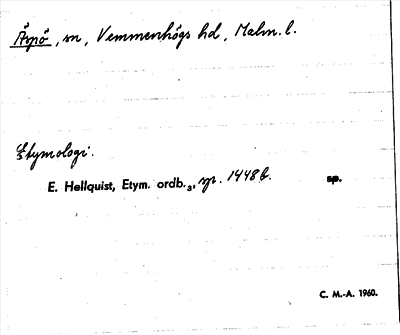 Äspö, sn, Vemmenhögs hd, Malm. l.
Etymologi.
E. Hellquist, Etym. ordb.3, sp. 1448 b. sp.
C. M.-A. 1960.